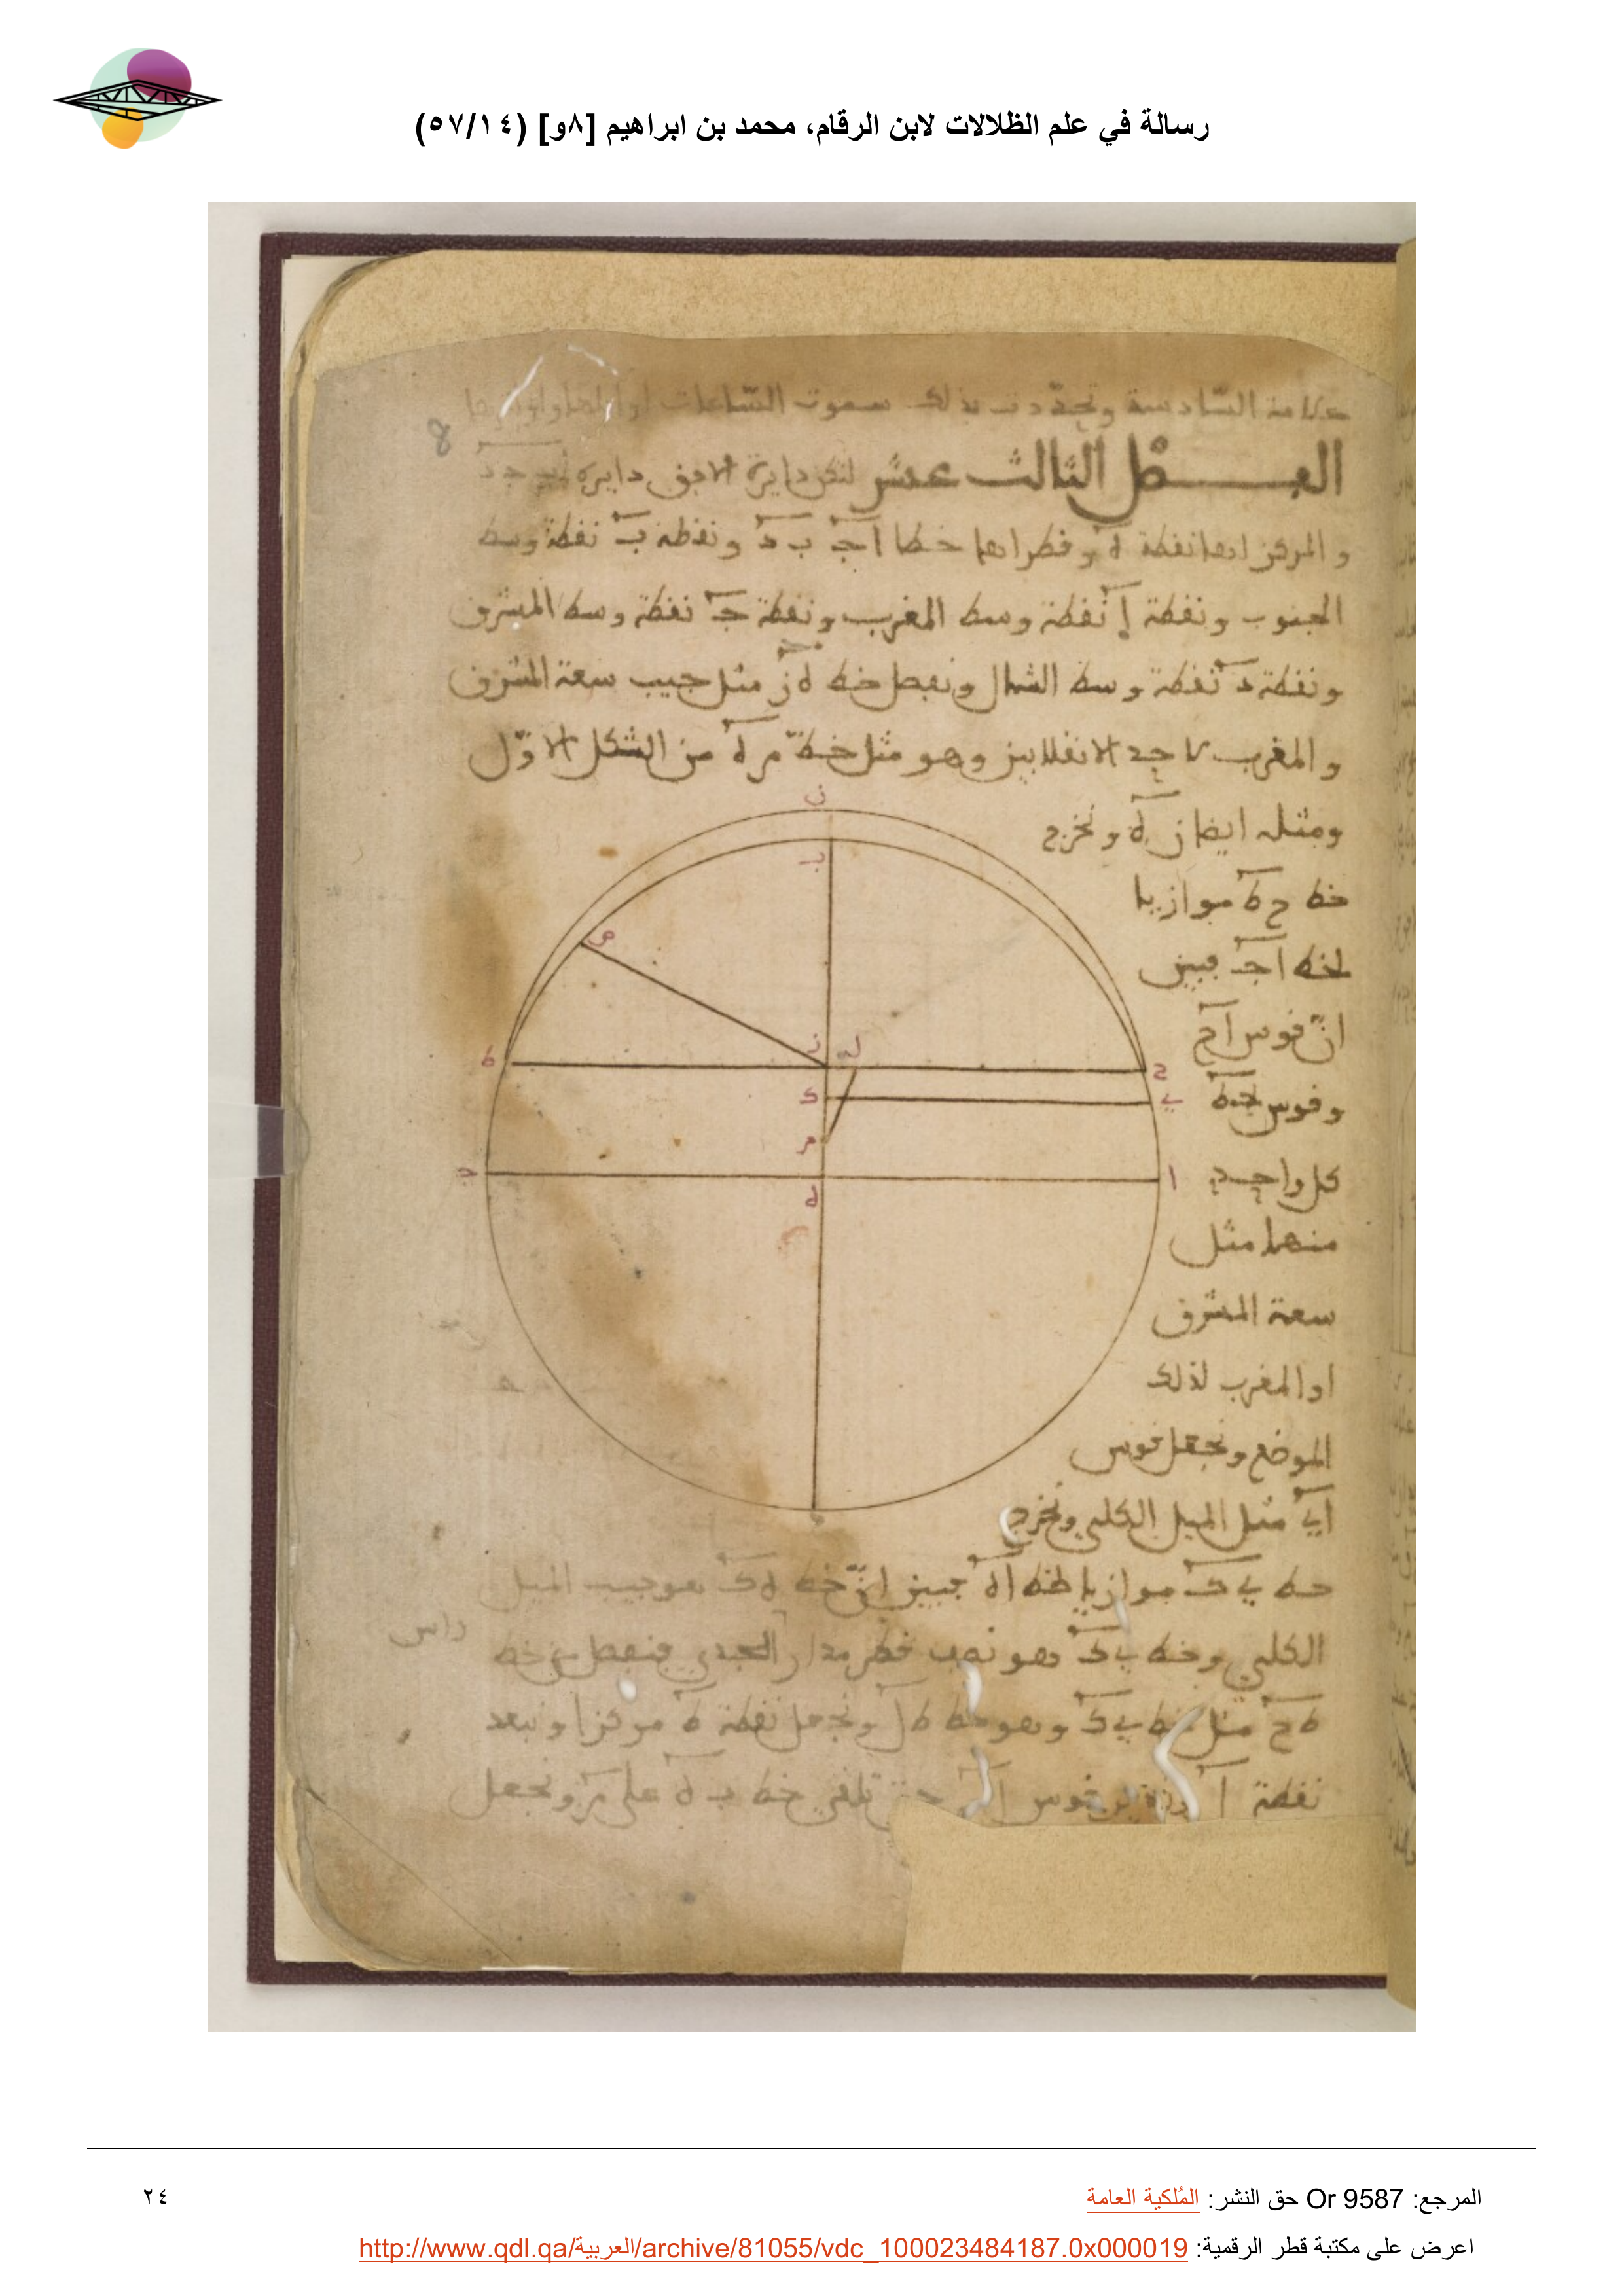 رسالة في علم الظلالات لابن الرقام، محمد بن ابراهيم [٨و] (٥٧/١٤)
علامة السادسة وتحددت بذلك سموت الساعات
8
الفصل الثالث عشر لتكن دايرة الافق دايرة اب جد
والمركز لها نقطة ه وقطراها خطا اج ب د ونقطة ب نقطة وسط
الجنوب ونقطة ا نقطة وسط المغرب ونقطة ج نقطة وسط المشرق
ونقطة د نقطة وسط الشمال ونفصل خط ه ز مثل جيب سعة المشرق
والمغرب لاحد الانقلابين وهو مثل خط م ه من الشكل الاول
ومثله ايضا ز ه ونخرج
خط ح ط موازيا
لخط اج فبين
ان قوس اح
وقوس جط
كل واحد
منهما مثل
سعة المشرق
او المغرب لذلك
الموضع ونجعل قوس
اي مثل الميل الكلي ونخرج
خط ي ك موازيا لخط اه فبين ان خط ه ك هو جيب الميل
الكلي وخط ي ك هو نصف قطر مدار الجدي فنفصل من خط
راس
ط ح مثل خط ي ك وهو خط ط ل ونجعل نقطة ط مركزا وببعد
نقطة قوس تلقى خط ب ه على م ونجعل
ن
ب
ص
ز
ل
ط
ح
ك
ي
م
ج
ا
ه
د
المرجع: Or 9587 حق النشر: المُلكية العامة
٢٤
اعرض على مكتبة قطر الرقمية: http://www.qdl.qa/العربية/archive/81055/vdc_100023484187.0x000019